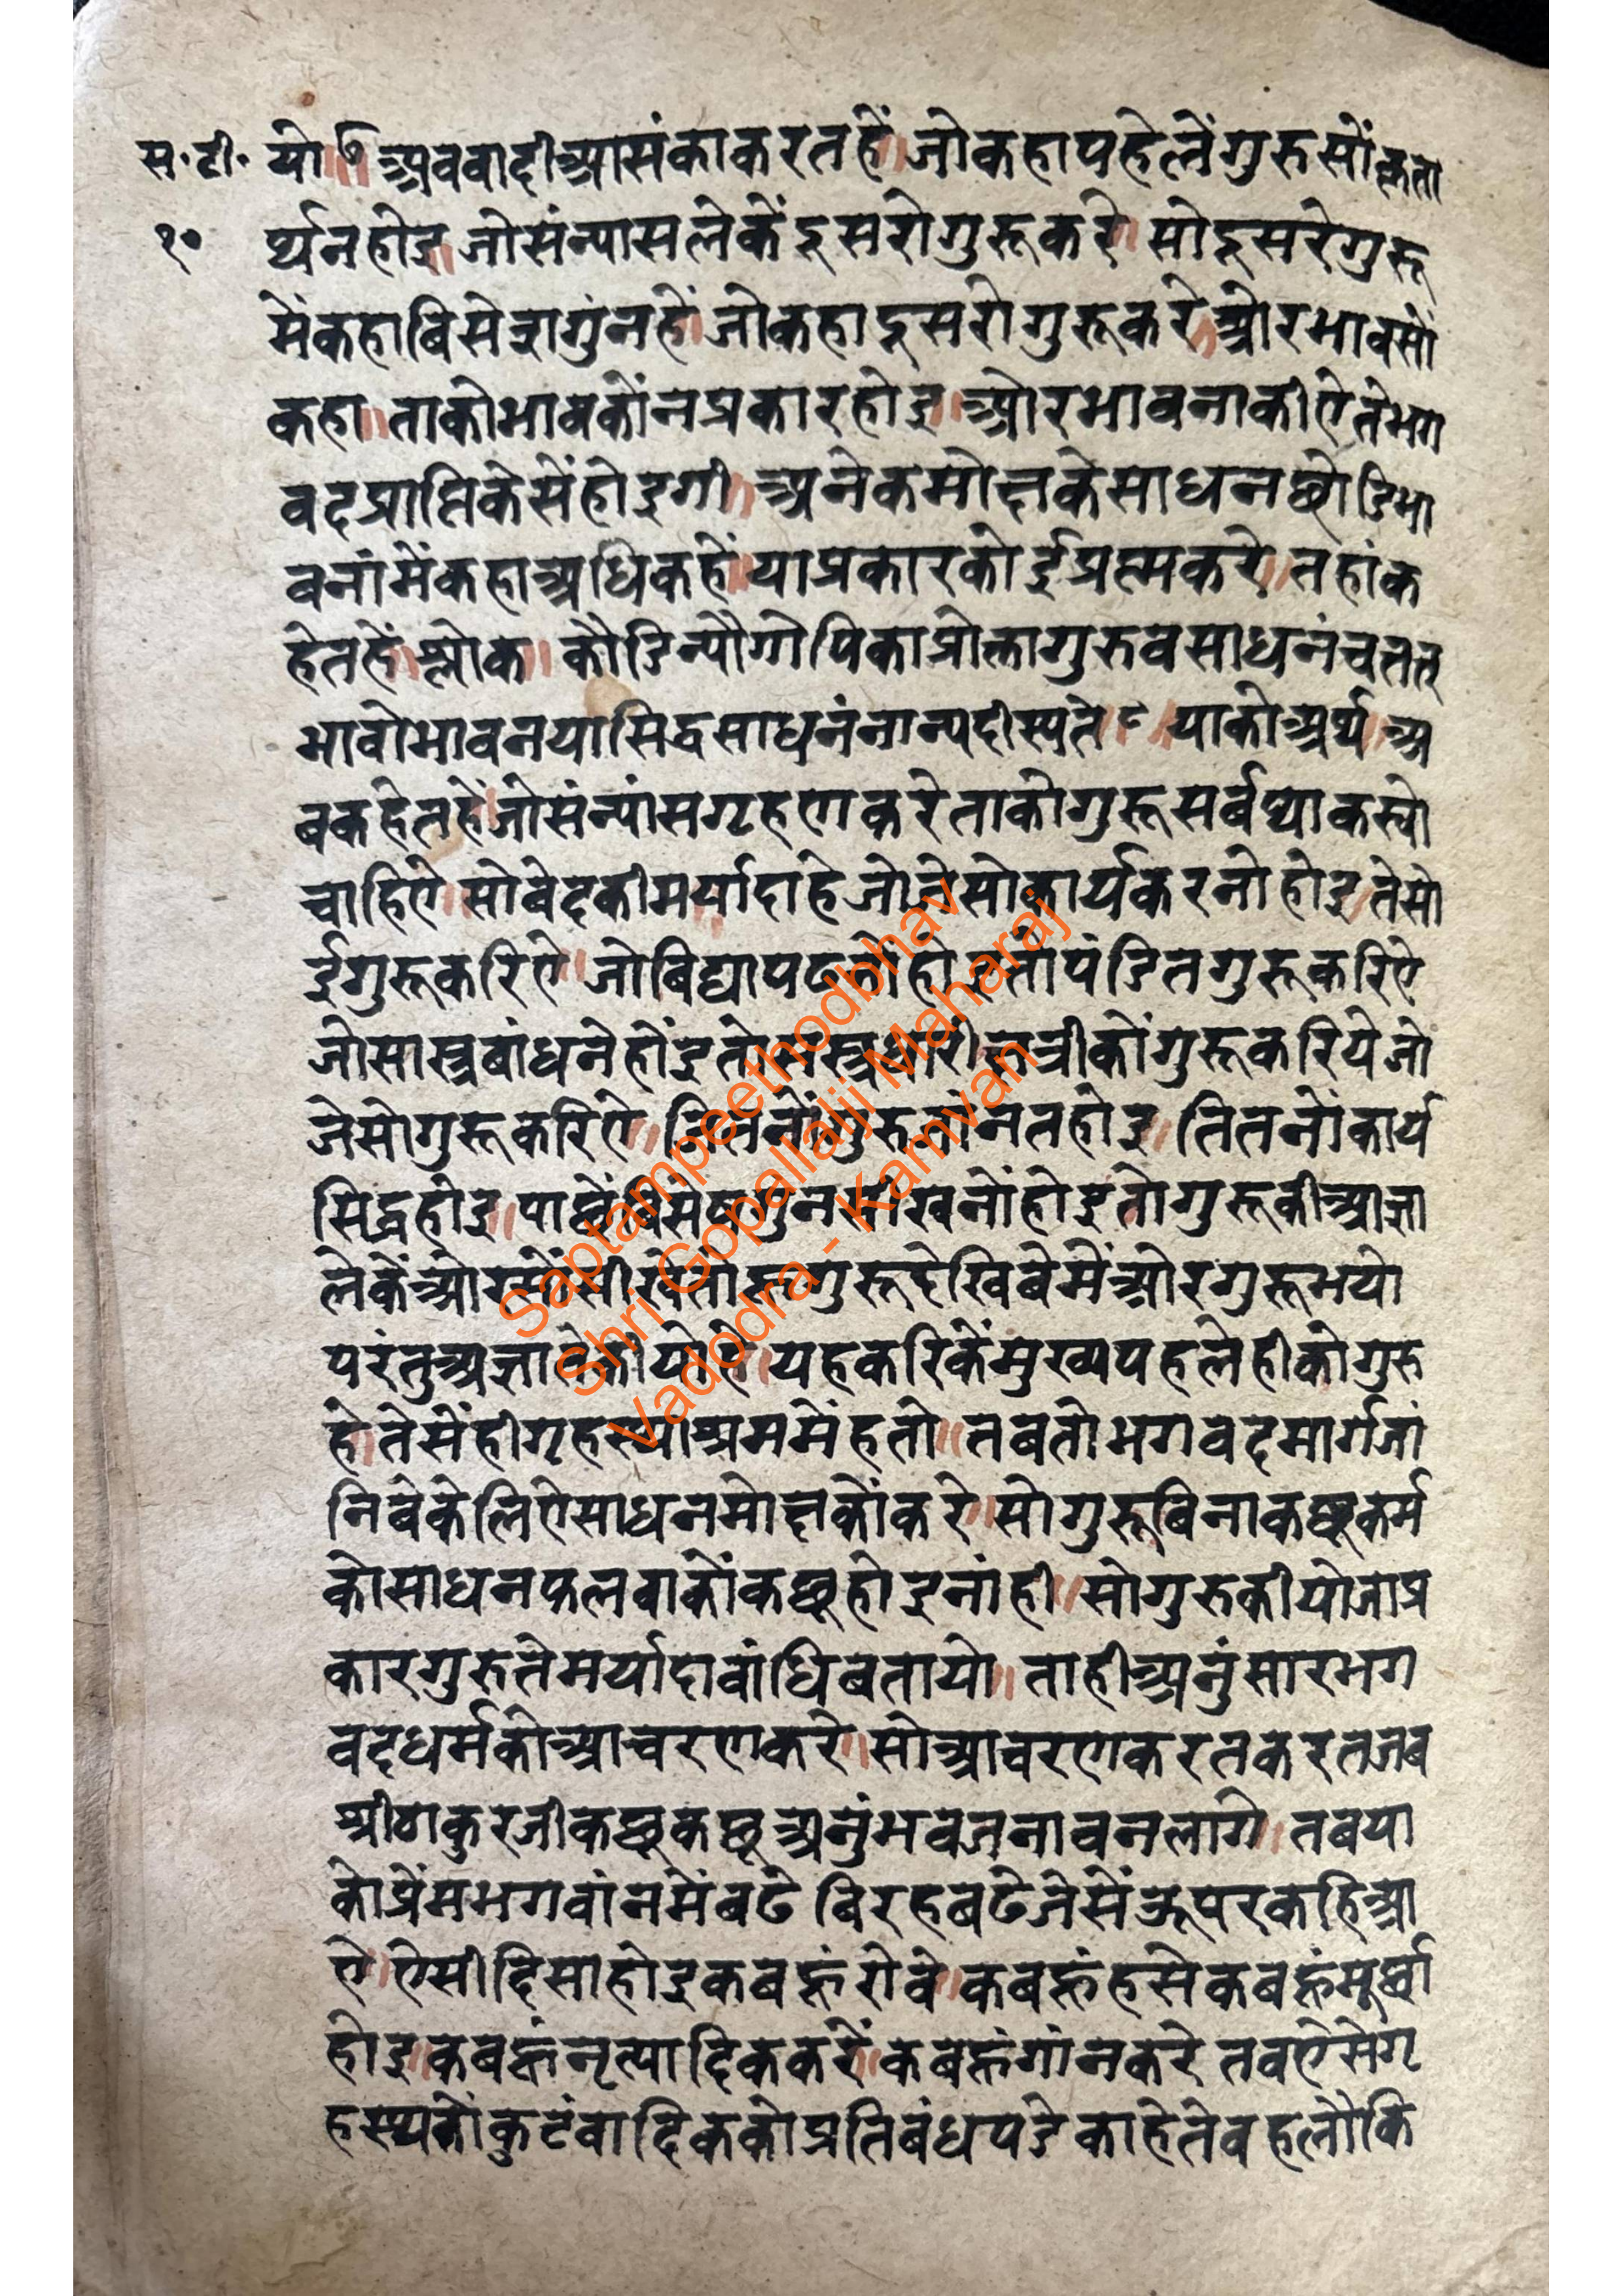 स॰टी॰ यो॥७ अबवादीआसंकाकरतहें॥जोकहापहेलेंगुरुसोंकृता
१० र्थनहोइ॥जोसंन्यासलेकेंदुसरोगुरूकरे॥सोदूसरेगुरू
मेंकहाबिसेशगुंनहें॥जोकहादूसरोगुरूकरे॥ओरभावसों
कहा॥ताकोभावकोंनप्रकारहोइ॥ओरभावनाकीऐतेभग
वदप्राप्तिकेसेंहोइगी॥अनेकमोक्षकेसाधनछोडिभा
वनांमेंकहाअधिकहें॥याप्रकारकोईप्रस्मकरे॥तहांक
हेतहें॥श्लोक॥कौडिन्यौगोपिकाप्रोक्तागुरुवसाधनंचतत्
भावोभावनयासिद्धसाधनंनान्यदीस्यते॥८॥याकोअर्थ॥अ
बकहेतहें॥जोसंन्यांसगृहणकरेताकोगुरूसर्बथाकस्यो
चाहिऐ॥सोबेदकीमर्यादाहेजोजेसोकार्यकरनोहोइ॥तेसो
ईगुरूकरिऐ॥जोबिद्यापढतोहोइतोपंडितगुरूकरिऐ
जोसास्त्रबांधनेहोंइतोसस्त्रधारीक्षत्रीकोंगुरूकरियेजो
जेसोगुरूकरिऐ॥जितनोंगुरुजांनतहोइ॥तितनोंकार्य
सिद्धहोइ॥पाछेंबिसेषगुनसीखनोंहोइतोगुरूकीआज्ञा
लेकेंओरसोंसीखेतोहूगुरूदेखिबेमेंओरगुरूभयो
परंतुअज्ञालेकीयोहे॥यहकरिकेंमुख्यपहलेहीकोगुरु
हे॥तेसेंहीगृहस्थाश्रममेंहतो॥तबतोभगवदमार्गजां
निबेकेलिऐसाधनमोक्षकोंकरे॥सोगुरूबिनाकछूकर्म
कोसाधनफलवाकोंकछूहोइनांही॥सोगुरुकीयोजाप्र
कारगुरुतेमर्यादावांधिबतायो॥ताहीअनुंसारभग
वदधर्मकोआचरणकरे॥सोआचरणकरतकरतजब
श्रीठाकुरजीकछूकछूअनुंभवजनावनलागे॥तबया
कोप्रेंमभगवांनमेंबढेबिरहबढेजेसेंऊपरकहिआ
ऐ॥ऐसीदिसाहोइकबहूंरोवे॥कबहूंहसेकबहूंमूर्छा
होइ॥कबहूंनृत्यादिककरें॥कबहूंगांनकरेतबऐसेगृ
हस्थकोंकुटंबादिककोप्रतिबंधपडेकाहेतेवहलौकि
Saptampeethodbhav
Shri Gopallalji Maharaj
Vadodra - Kamvan